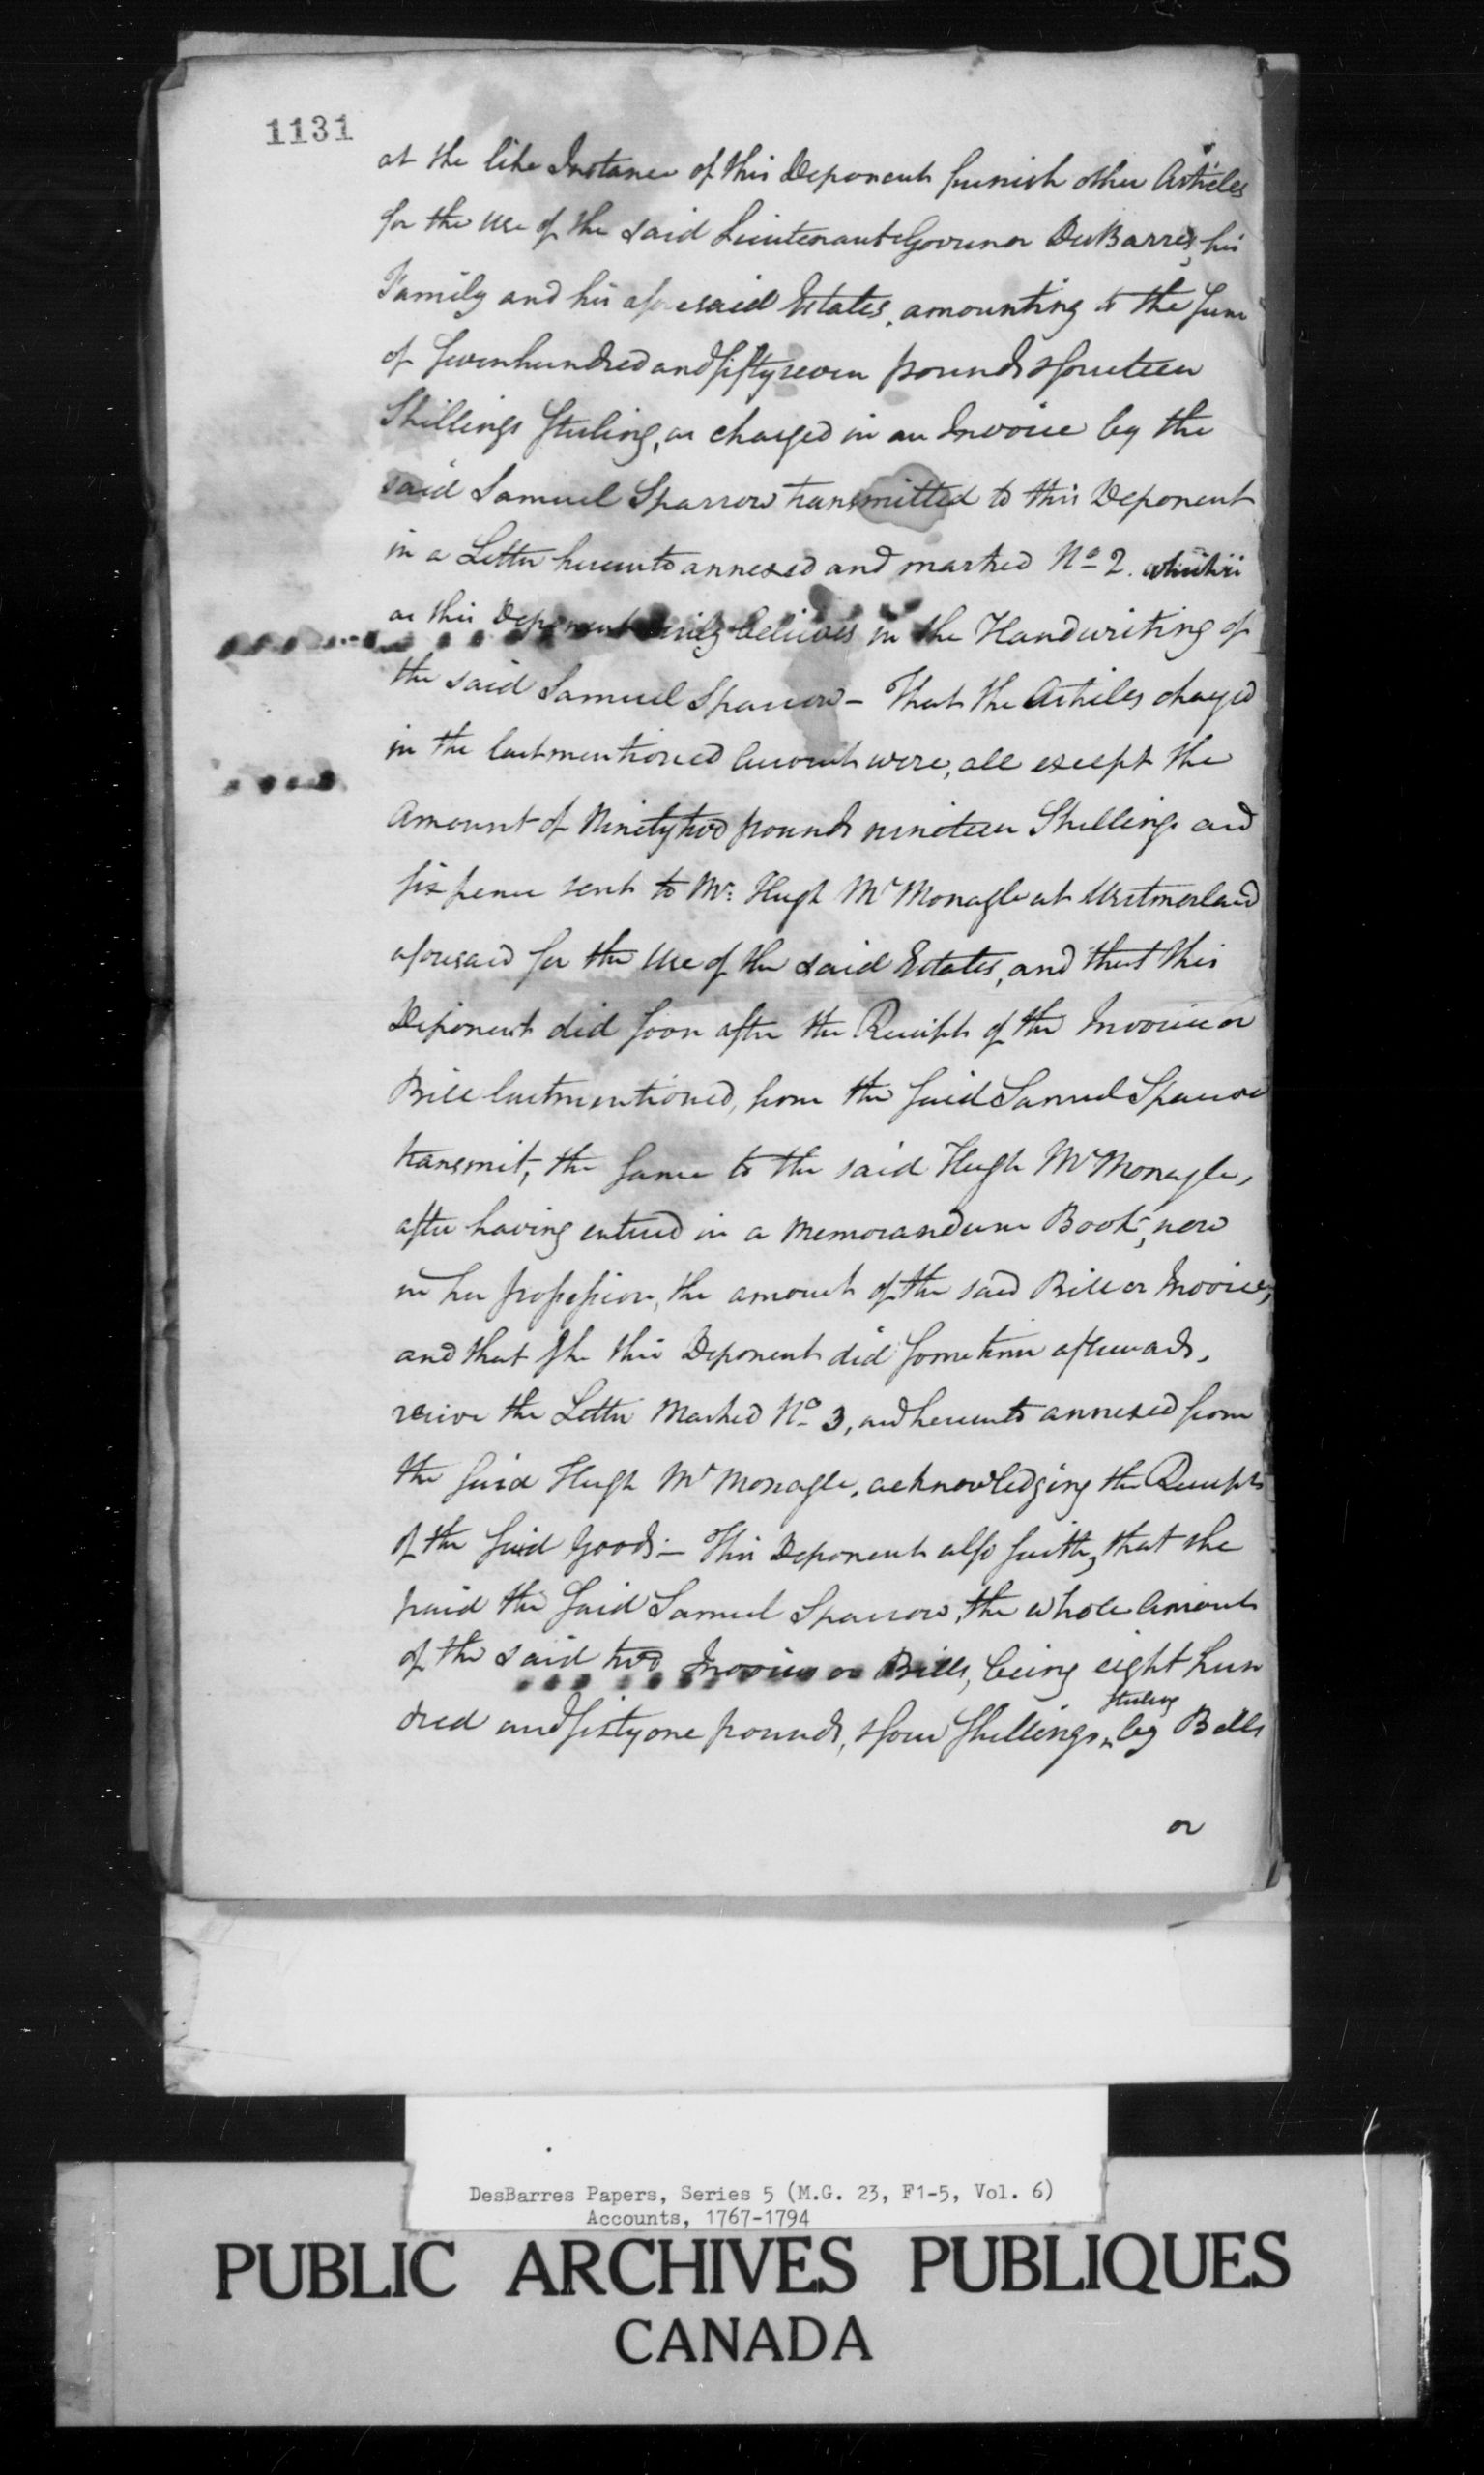 1131
at the like Instance of this Deponent furnish other Articles
for the use of the said Lieutenant Governor DesBarres, his
Family and his aforesaid Estates, amounting to the Sum
of Sevenhundred and fiftyseven pounds & fourteen
Shillings Sterling, as charged in an Invoice by the
said Samuel Sparrow transmitted to this Deponent
in a Letter hereunto annexed and marked No 2. which is
as this Deponent verily believes in the Handwriting of
the said Samuel Sparrow – That the Articles charged
in the lastmentioned Account were, all except the
Amount of Ninetytwo pounds nineteen Shillings and
six pence sent to Mr: Hugh McMonagle at Westmorland
aforesaid for the Use of the said Estates, and that this
Deponent did soon after the Receipt of the Invoice or
Bill lastmentioned, from the said Samuel Sparrow
transmit, the same to the said Hugh McMonagle,
after having entered in a Memorandum Book, now
in her possession, the amount of the said Bill or Invoice,
and that she this Deponent did sometime afterwards,
receive the Letter Marked No 3, and hereunto annexed from
the said Hugh McMonagle, acknowledging the Receipt
of the said Goods – This Deponent also saith, that she
paid the said Samuel Sparrow, the whole Amount
of the said two Invoices or Bills, being eight hun
dred and sixtyone pounds, & four shillings, Sterling by Bills
or
DesBarres Papers, Series 5 (M.G. 23, F1-5, Vol. 6)
Accounts, 1767-1794
PUBLIC ARCHIVES PUBLIQUES
CANADA